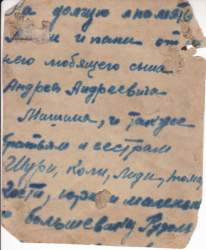 На долгую память
и папи от
него любящего сына
Андрея Андреевича
Мишина, и также
братьям и сестрам
Шури, коли, лиди,
и маленько
и большевику